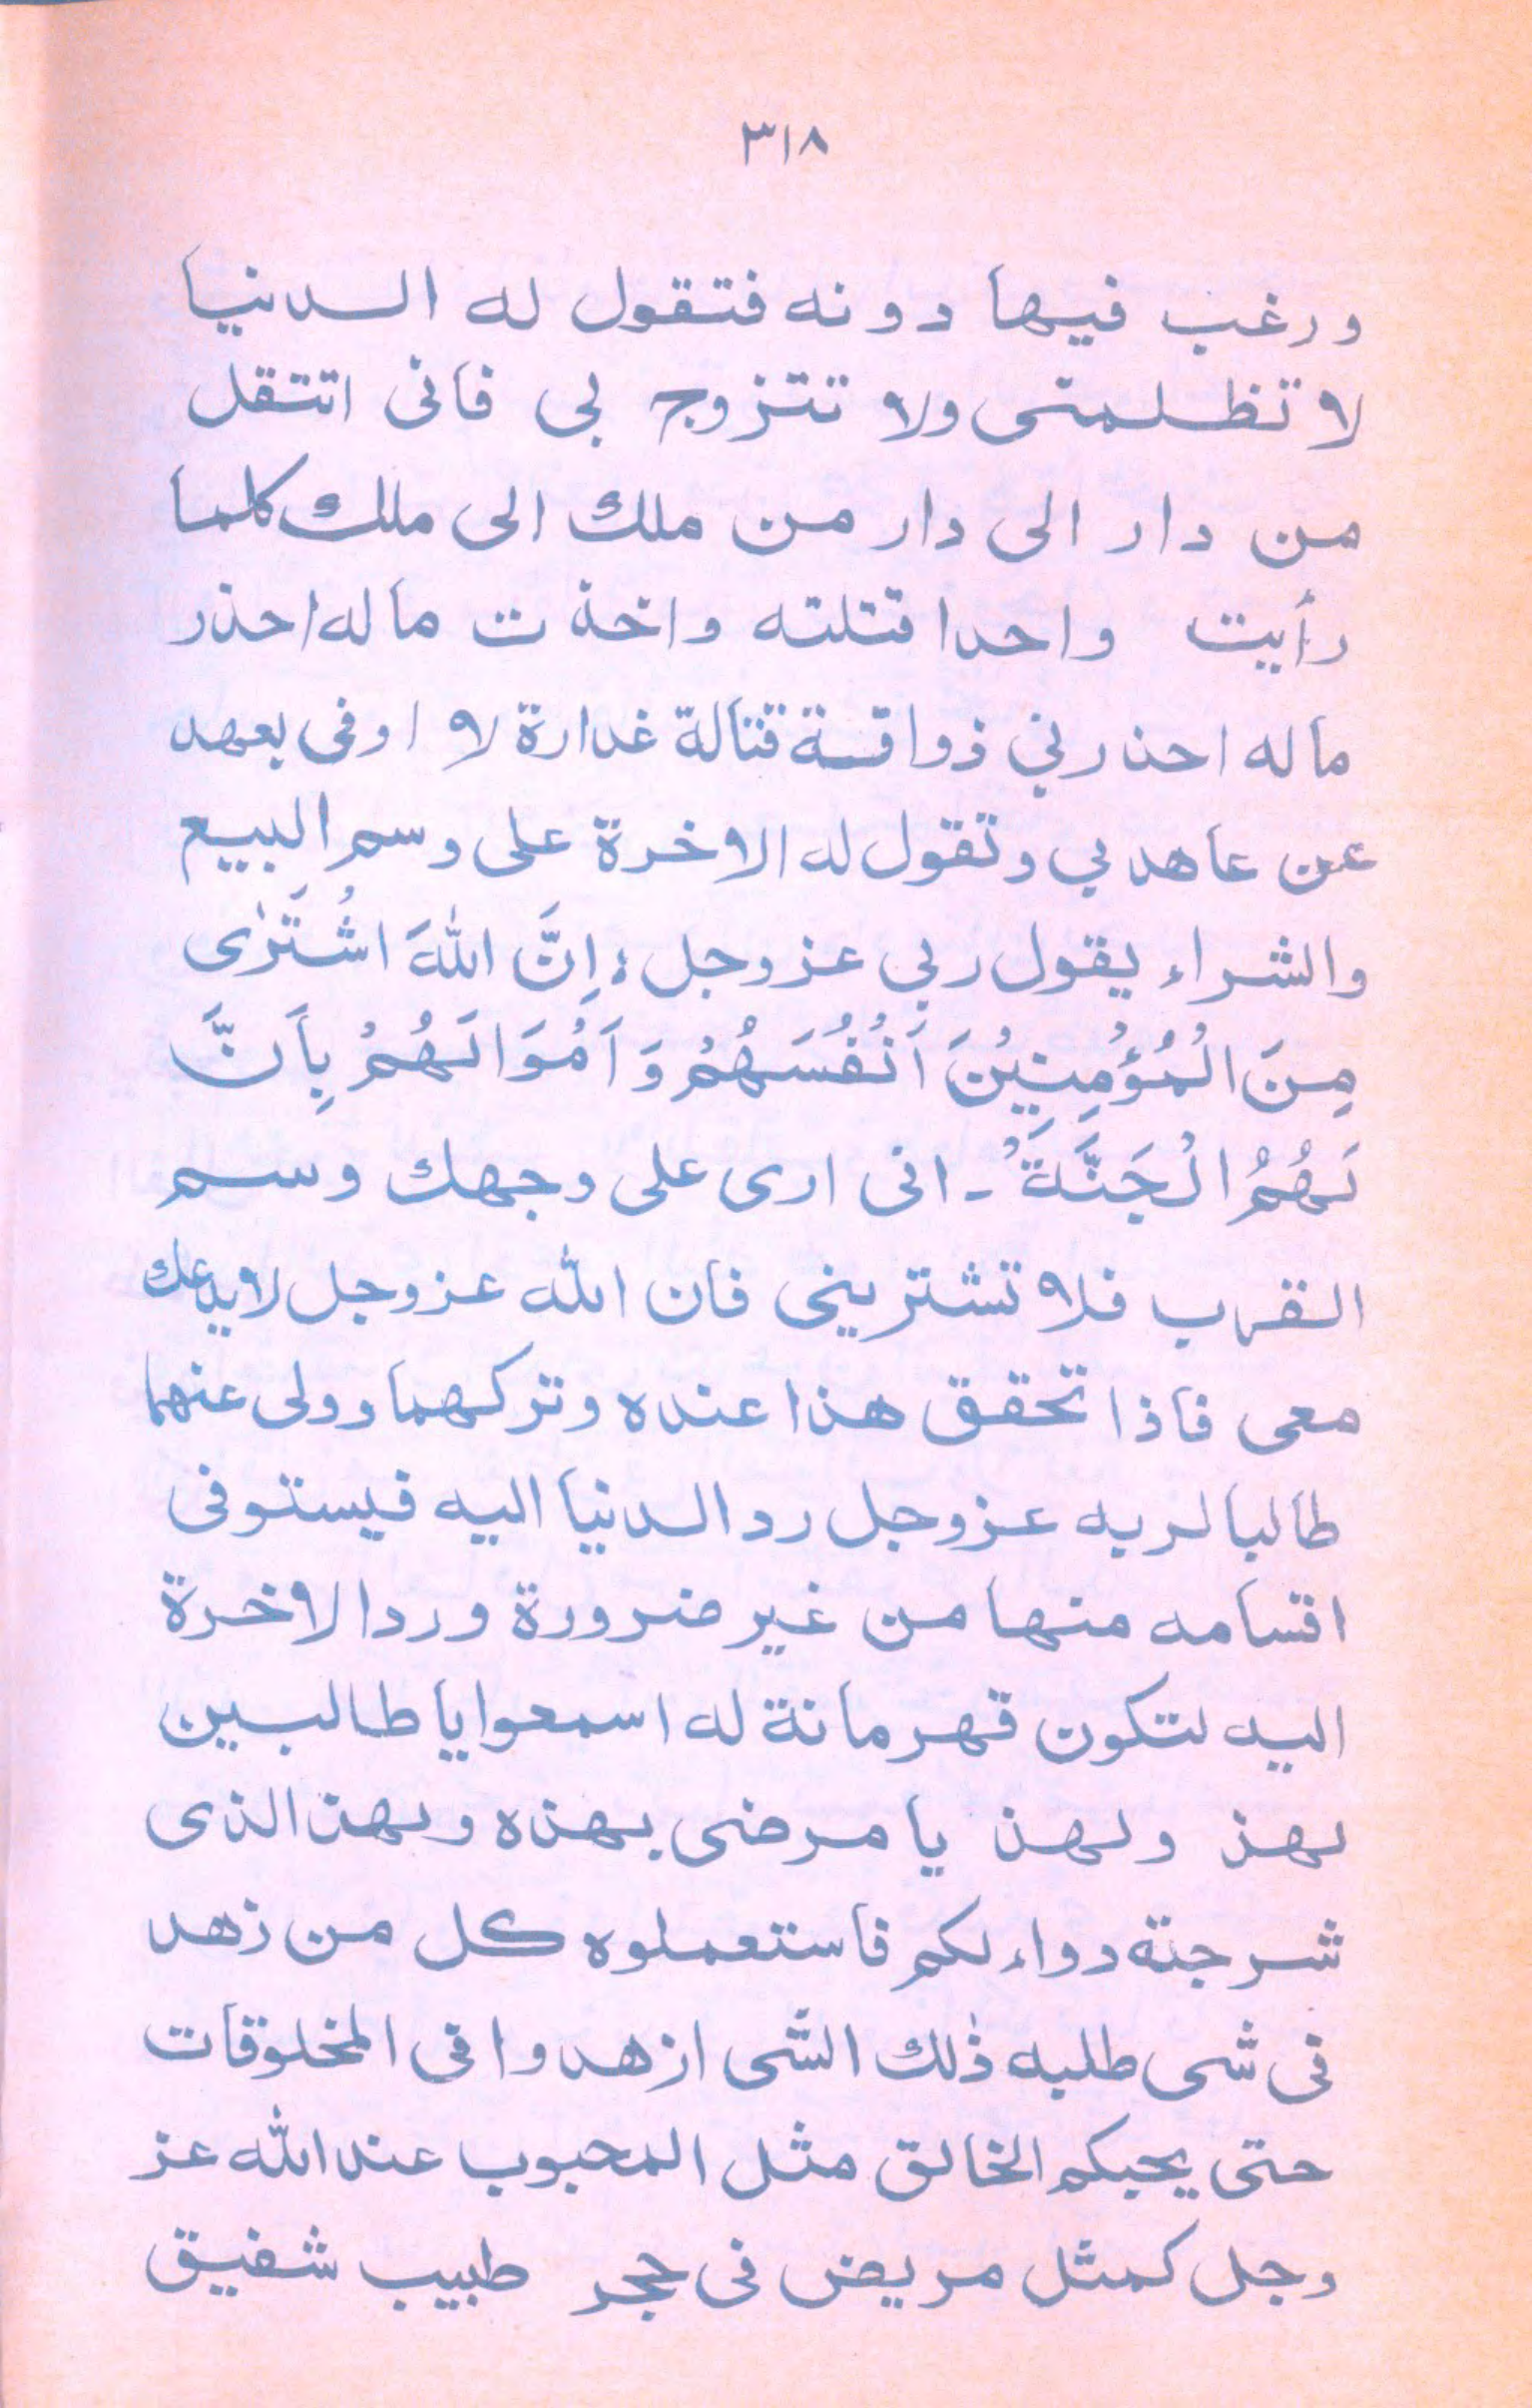 ٣١٨
ورغب فيها دونه فتقول له الدنيا
لا تظلمنى ولا تتزوج بى فانى انتقل
من دار الى دار من ملك الى ملك كلما
رأيت واحدا قتلته واخذت ماله احذر
ماله احذرنى ذواقسة قتالة غدارة لا اوفى بعهد
عن عاهدبى وتقول له الاخرة على وسم البيع
والشراء يقول ربى عزوجل: اِنَّ اللّٰهَ اشْتَرٰى
مِنَ الْمُؤْمِنِيْنَ اَنْفُسَهُمْ وَاَمْوَالَهُمْ بِاَنَّ
لَهُمُ الْجَنَّةَ ۔ انى ارى على وجهك وسم
القرب فلا تشترينى فان الله عزوجل لايدعك
معى فاذا تحقق هذا عنده وتركهما وولى عنهما
طالبا لربه عزوجل رد الدنيا اليه فيستوفى
اقسامه منها من غير ضرورة ورد الاخرة
اليه لتكون قهرمانة له اسمعوا يا طالبين
لهذ ولهذ يا مرضى بهذه وبهذ الذى
شرجتة دواء لكم فاستعملوه كل من زهد
فى شى طلبه ذٰلك الشى ازهدوا فى المخلوقات
حتى يحبكم الخالق مثل المحبوب عند الله عز
وجل كمثل مريض فى حجر طبيب شفيق